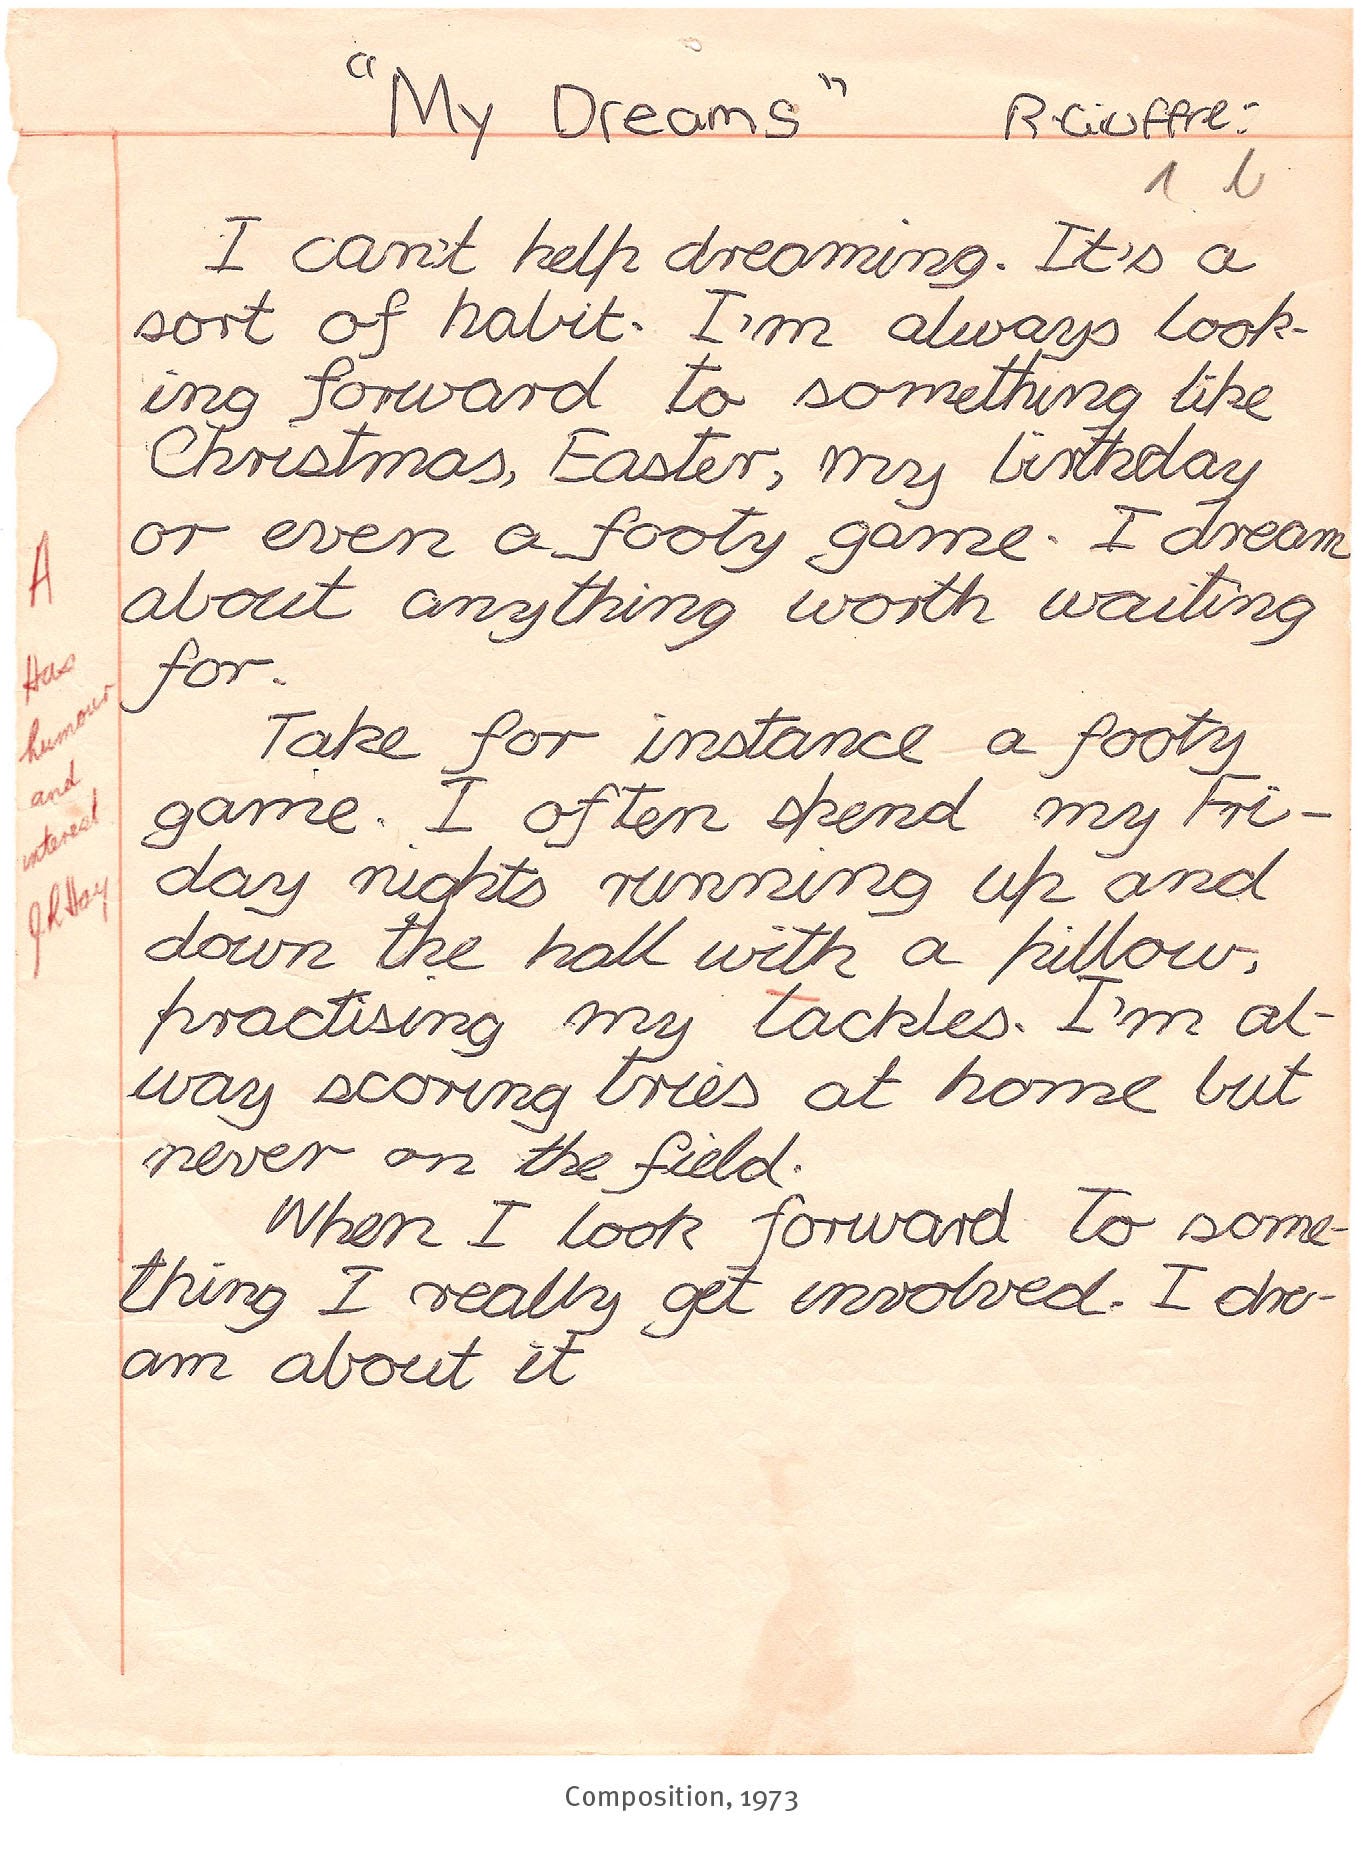 "My Dreams"
R. Giuffre:
1 b
I can't help dreaming. It's a
sort of habit. I'm always look-
ing forward to something like
Christmas, Easter, my birthday
or even a footy game. I dream
about anything worth waiting
for.
Take for instance a footy
game. I often spend my Fri-
day nights running up and
down the hall with a pillow,
practising my tackles. I'm al-
way scoring tries at home but
never on the field.
When I look forward to some-
thing I really get involved. I dre-
am about it
A
Has
humour
and
interest
J R Hay
Composition, 1973